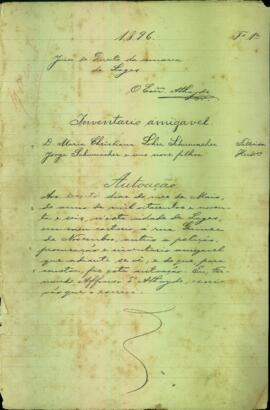 1896. Fl 1
Juizo de Direito da comarca
de Lages
O Escr. Athayde
Inventario amigavel
D. Maria Christiana Lohs Schumacher
Jorge Schumacher e nove filhos
Autoação
Aos oito dias do mez de Maio,
do anno de mil oitocentos e noven-
ta e seis, nesta cidade de Lages,
em meu cartorio, á rua Quinze
de Novembro, autúo a petição,
procuração e inventario amigavel
que adiante se vê; e do que, para
constar, fiz esta autoação. Eu,
Affonso Athayde, escri-
vão que o escrevi.